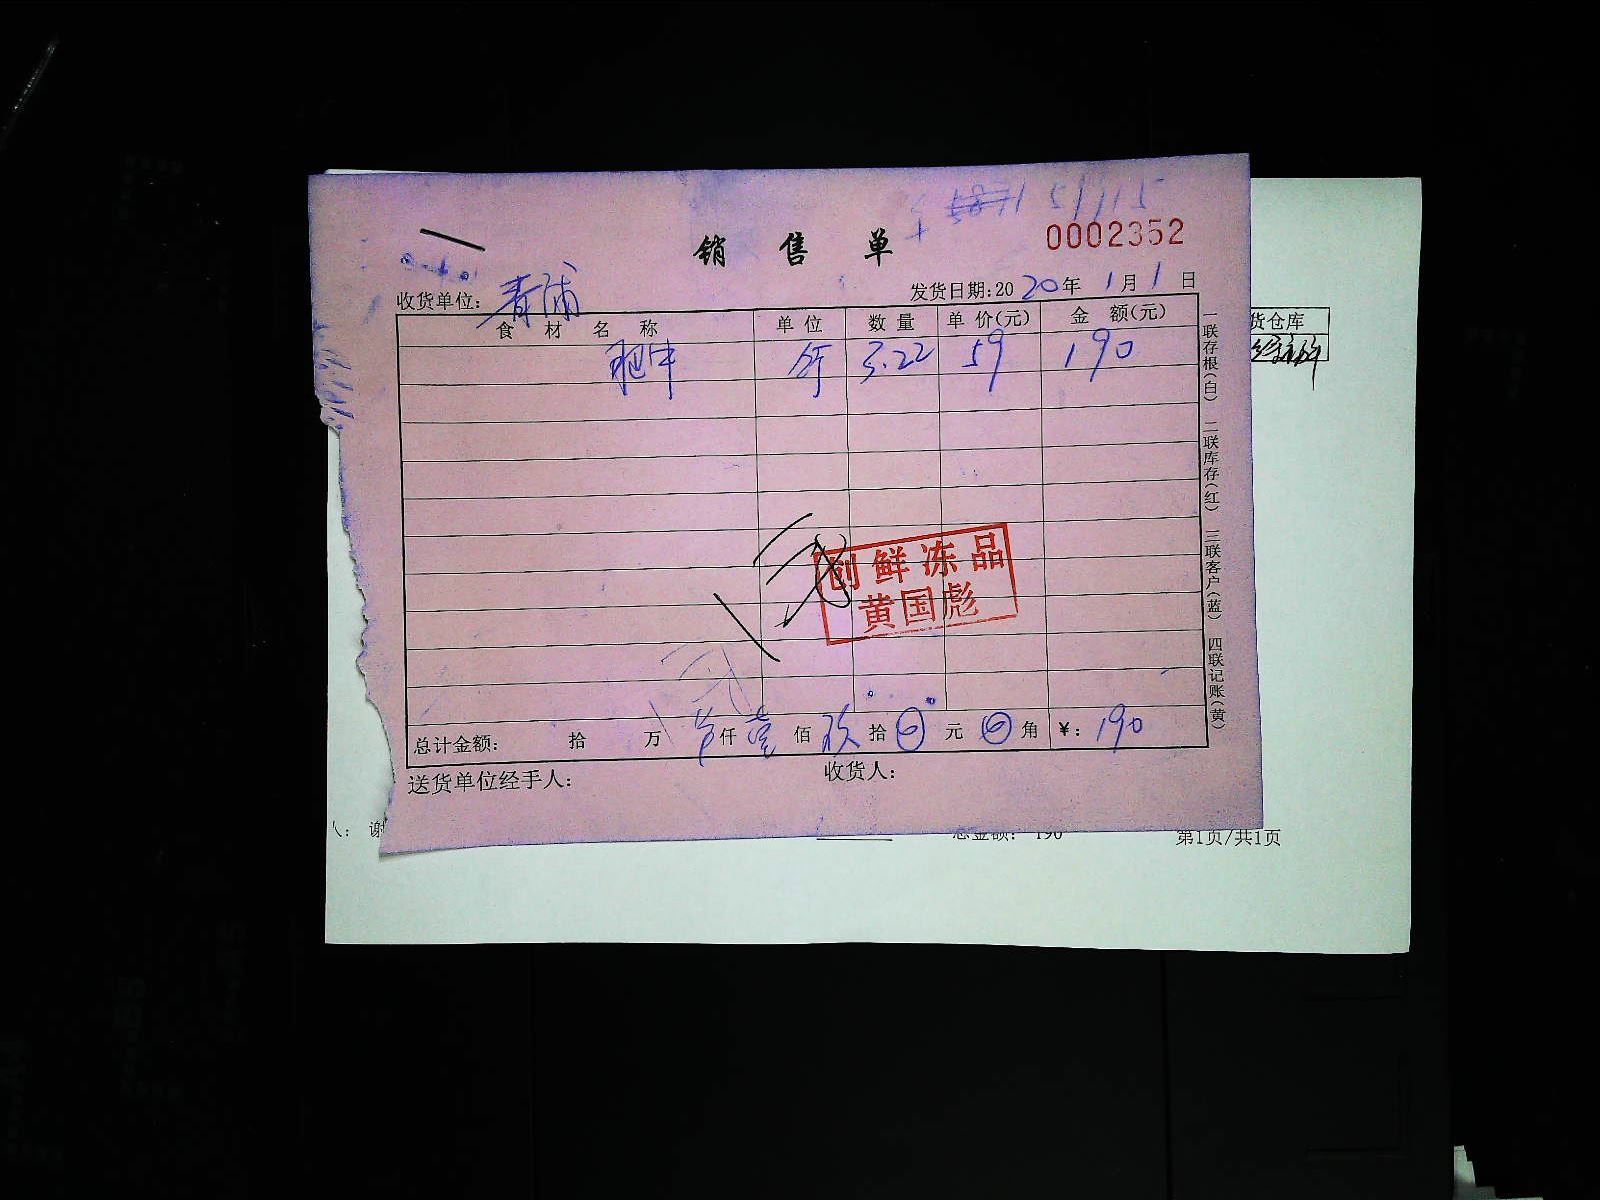 销售单
0002352
收货单位: 青浦
发货日期:2020年1月1日
食材名称 单位 数量 单价(元) 金额(元)
肥牛 斤 3.22 59 190
创鲜冻品
黄国彪
总计金额: 拾 万 仟壹佰玖拾 元 角 ¥: 190
送货单位经手人: 收货人:
一联存根(白) 二联库存(红) 三联客户(蓝) 四联记账(黄)
货仓库
人: 谢
总金额: 190
第1页/共1页